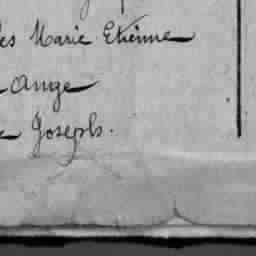 les Marie Etienne
Ange
Joseph.